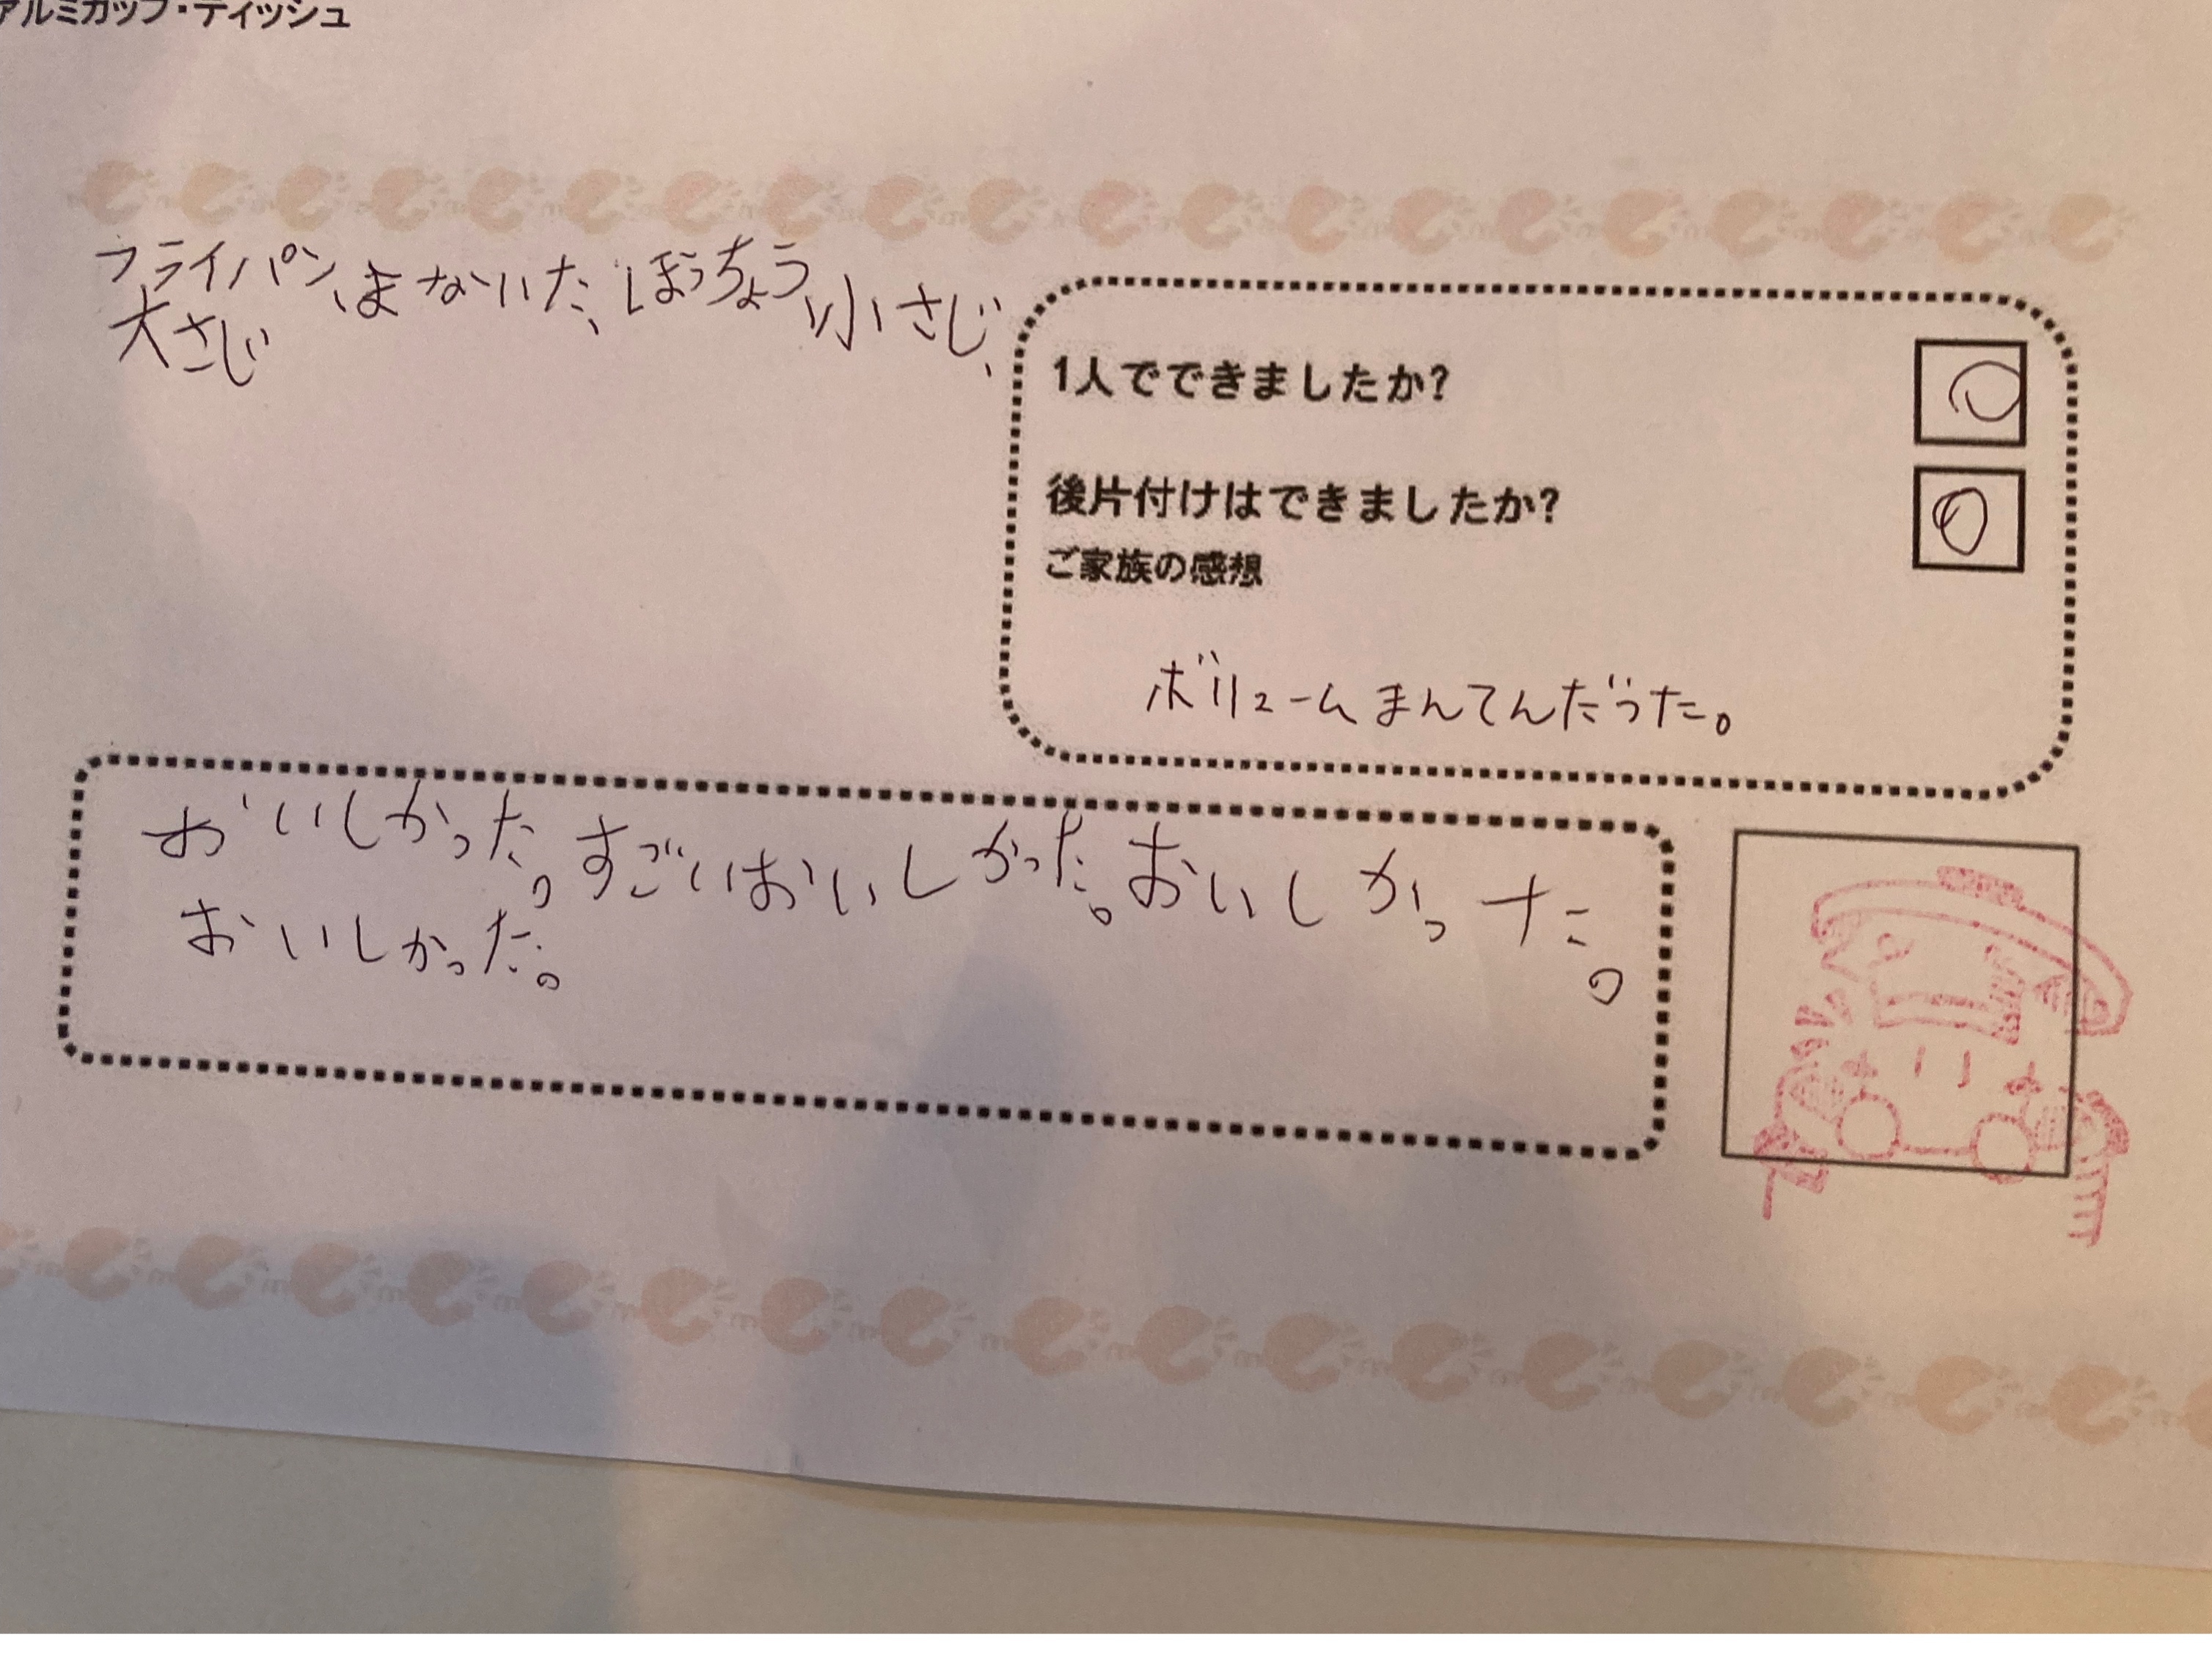 アルミカップ・ティッシュ
フライパン、まないた、ぼうちょう、小さじ、
大さじ
1人でできましたか?
後片付けはできましたか?
ご家族の感想
ボリュームまんてんだった。
おいしかった。すごいおいしかった。おいしかった。
おいしかった。